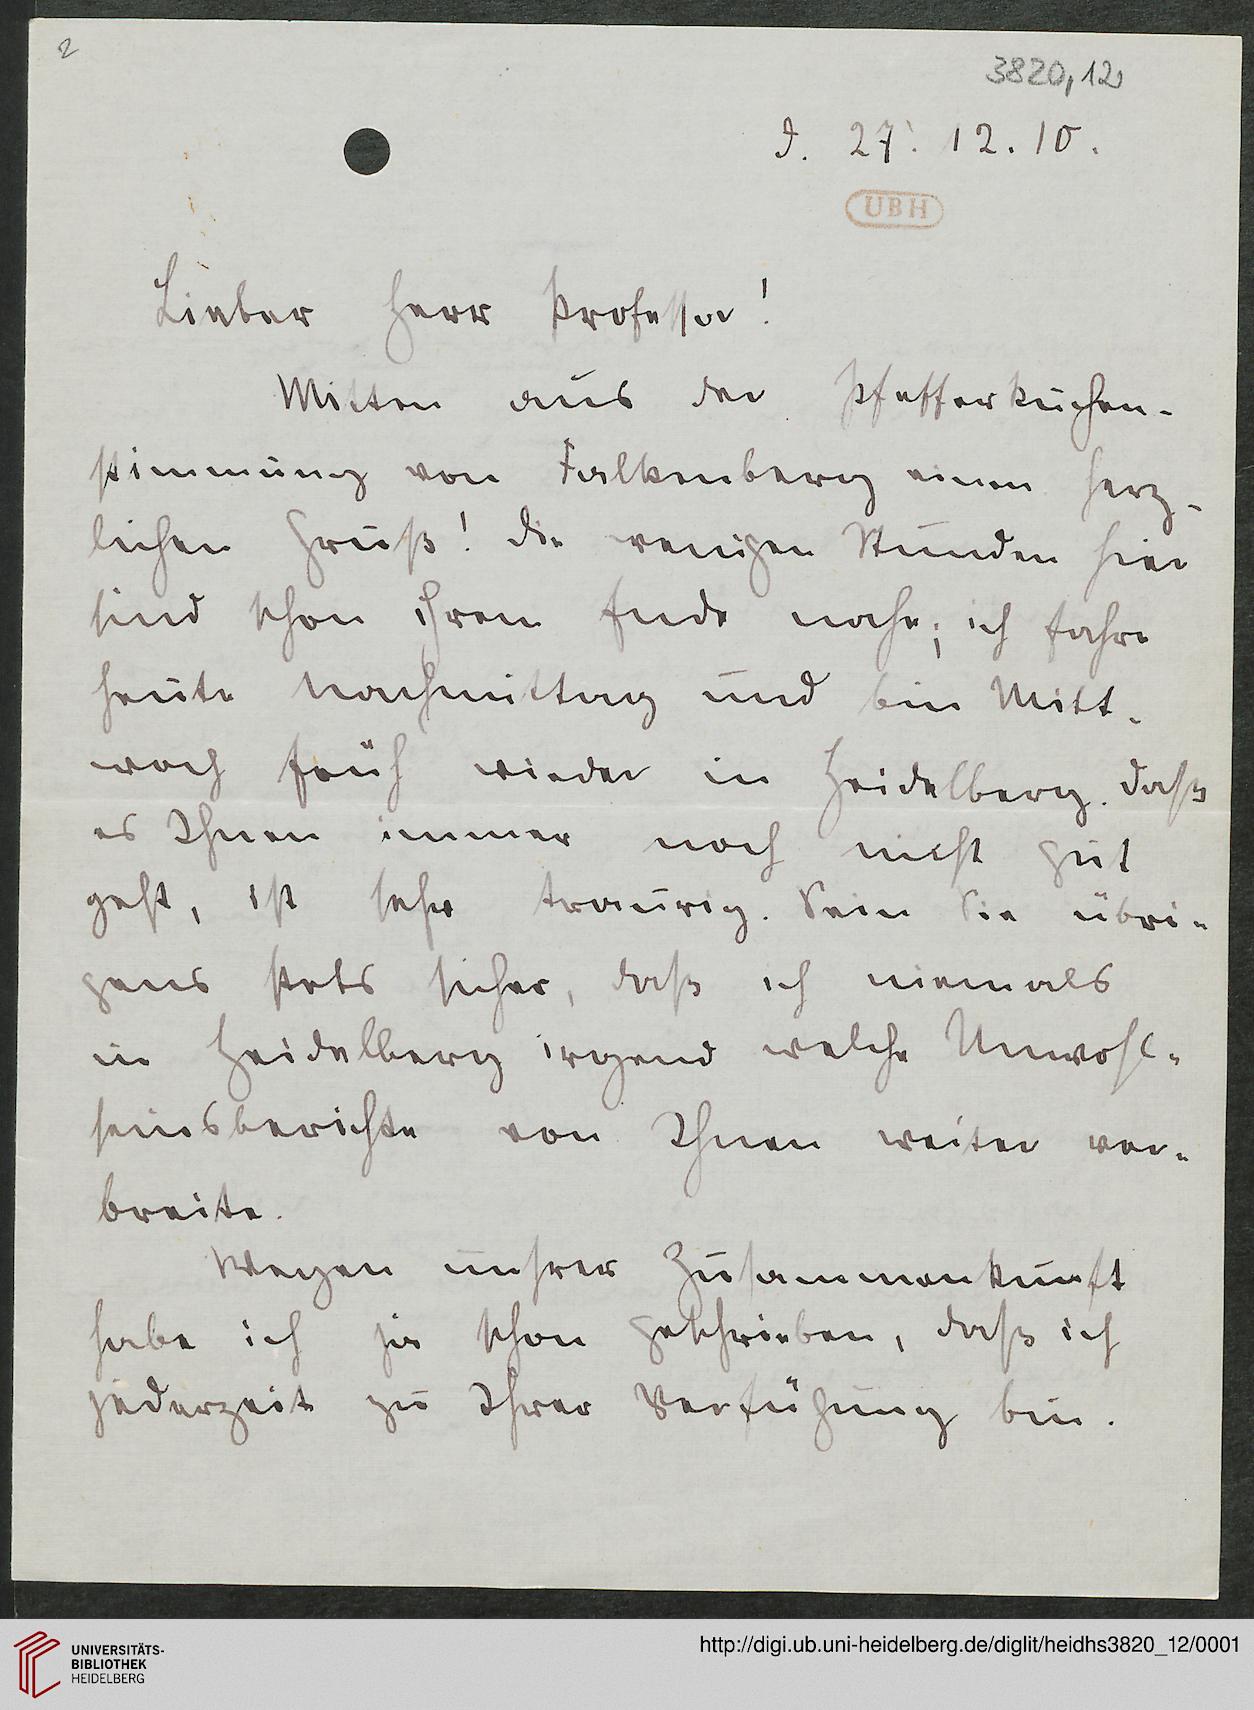 2
3820,12
D. 27. 12. 10.
UBH
Lieber Herr Professor!
Mitten aus der Pfefferkuchen-
stimmung von Falkenberg einen herz-
lichen Gruß! Die wenigen Stunden hier
sind schon ihrem Ende nahe; ich fahre
heute Nachmittag und bin Mitt-
woch früh wieder in Heidelberg. Daß
es Ihnen immer noch nicht gut
geht, ist sehr traurig. Sein Sie übri-
gens stets sicher, daß ich niemals
in Heidelberg irgend welche Unwohl-
seinsberichte von Ihnen weiter ver-
breite.
Wegen unsrer Zusammenkunft
habe ich ja schon geschrieben, daß ich
jederzeit zu Ihrer Verfügung bin.
UNIVERSITÄTS-
BIBLIOTHEK
HEIDELBERG
http://digi.ub.uni-heidelberg.de/diglit/heidhs3820_12/0001